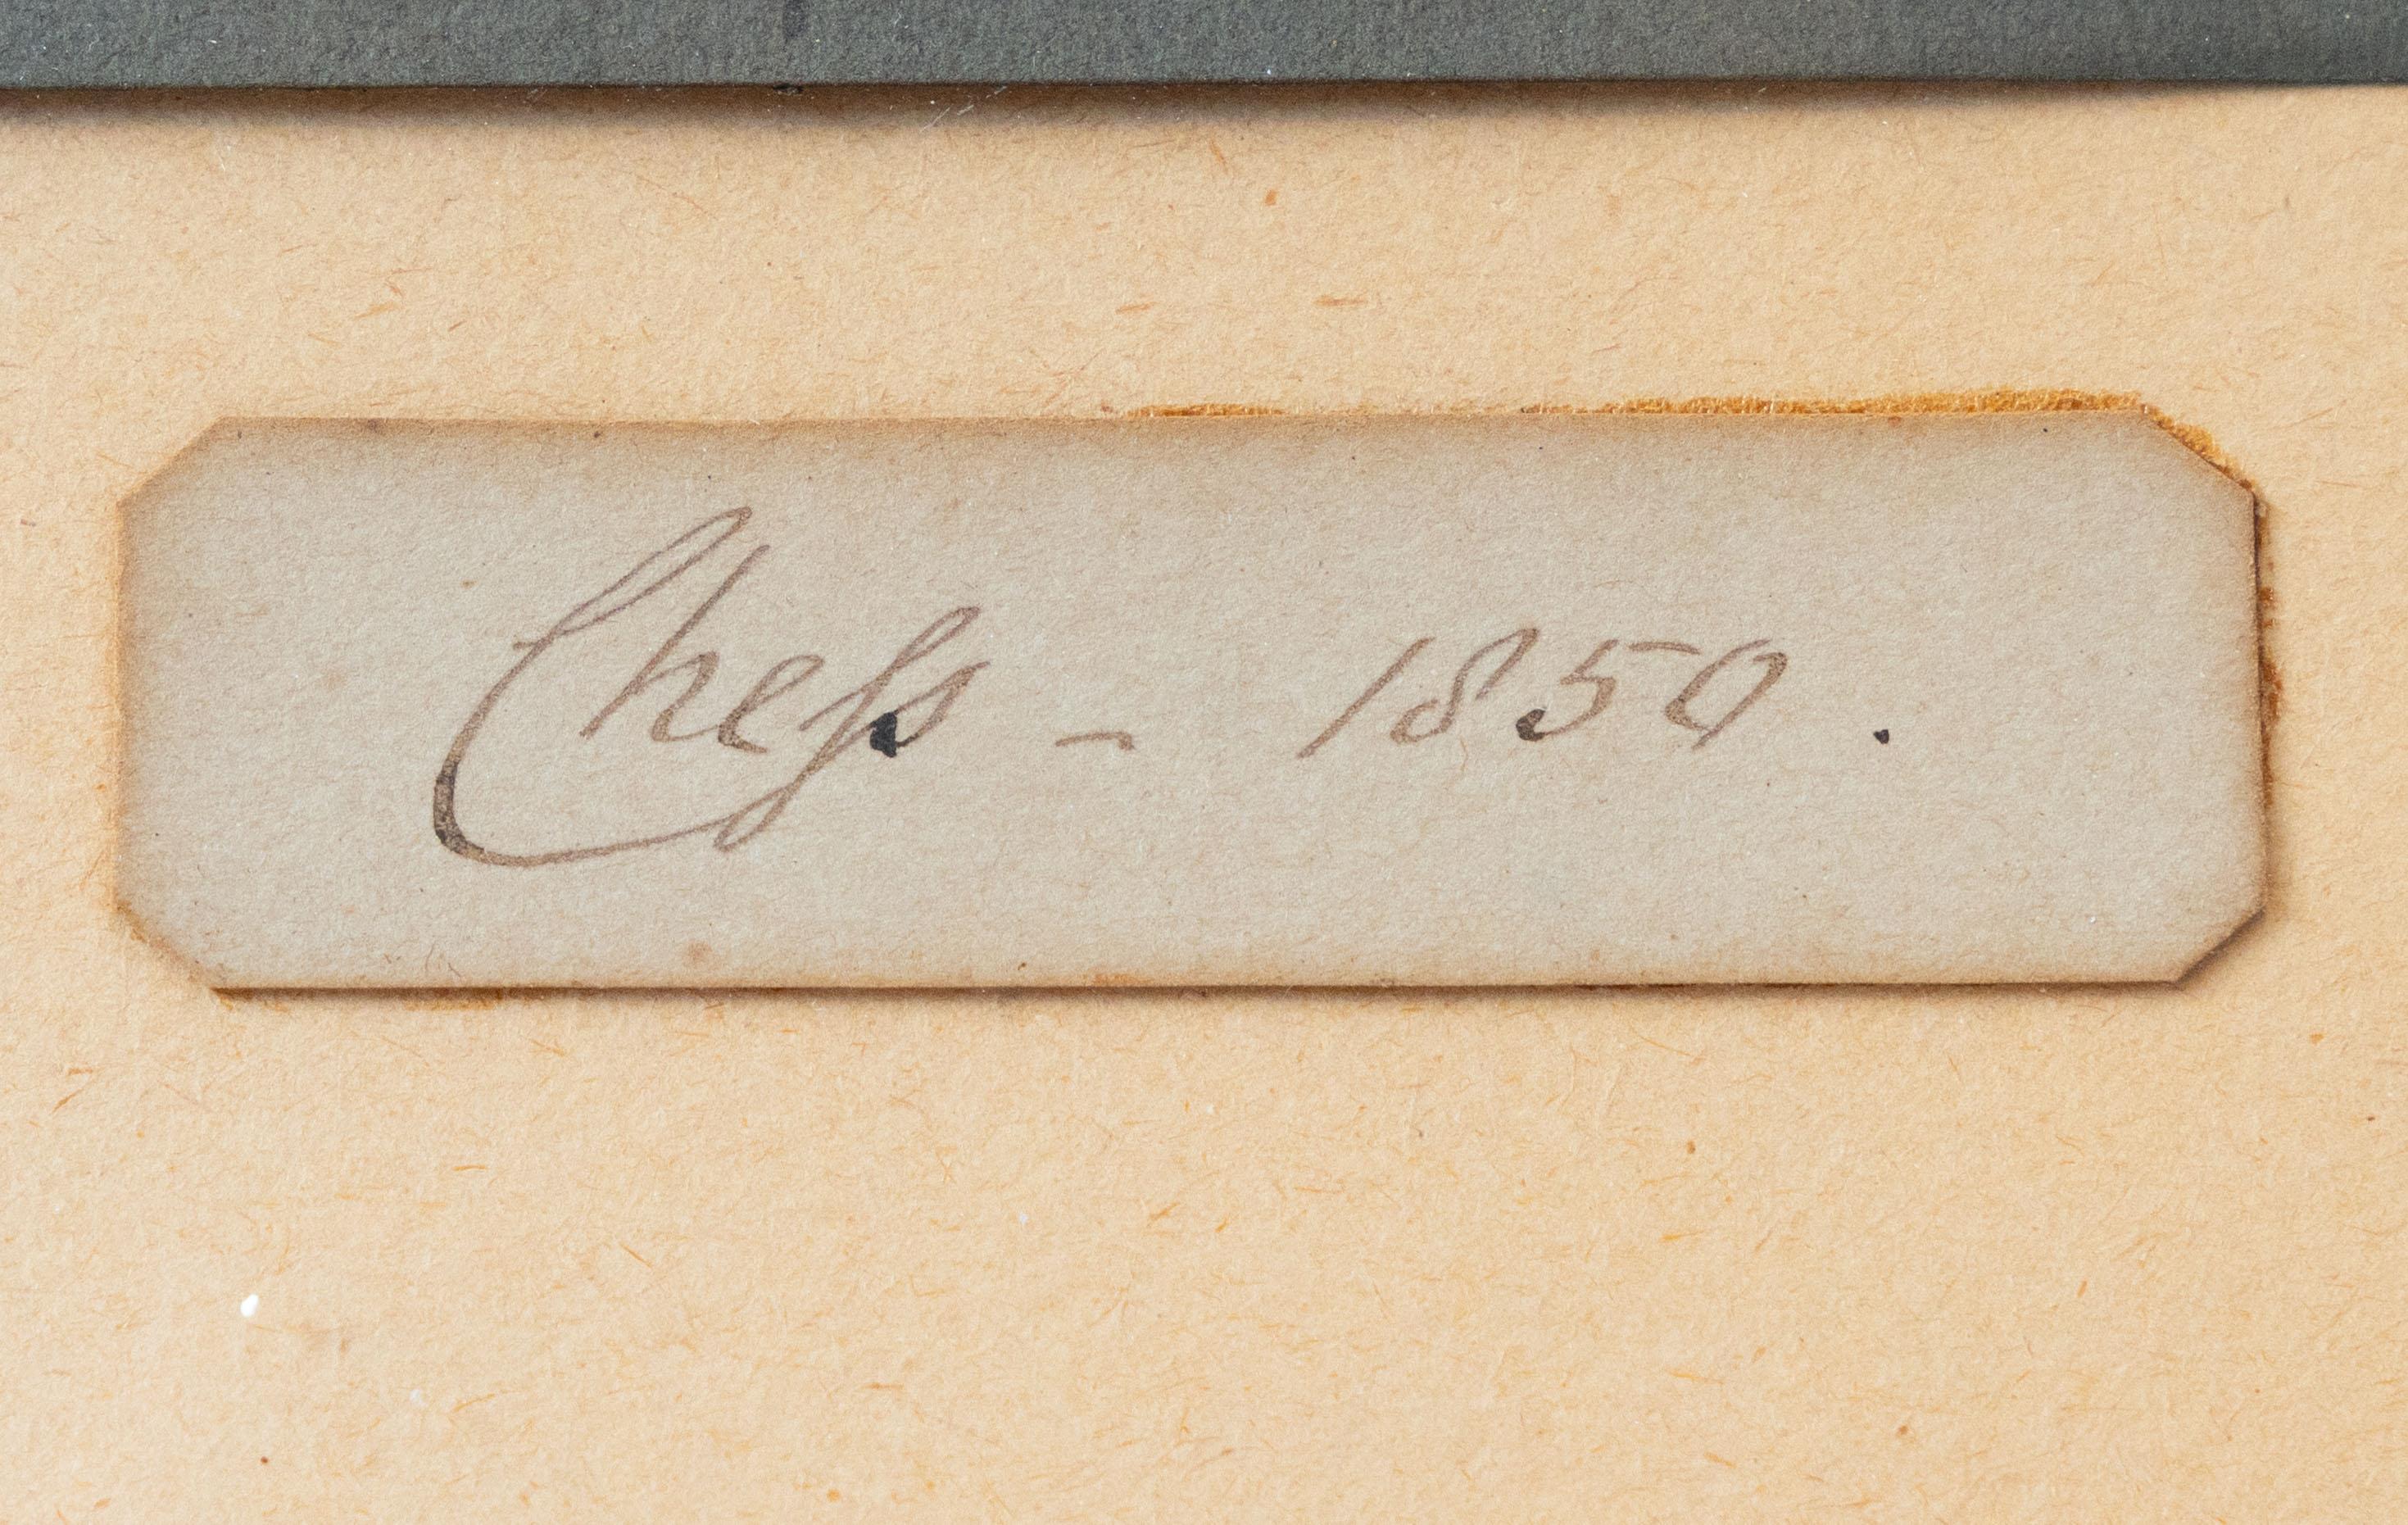 Cheſs - 1850.